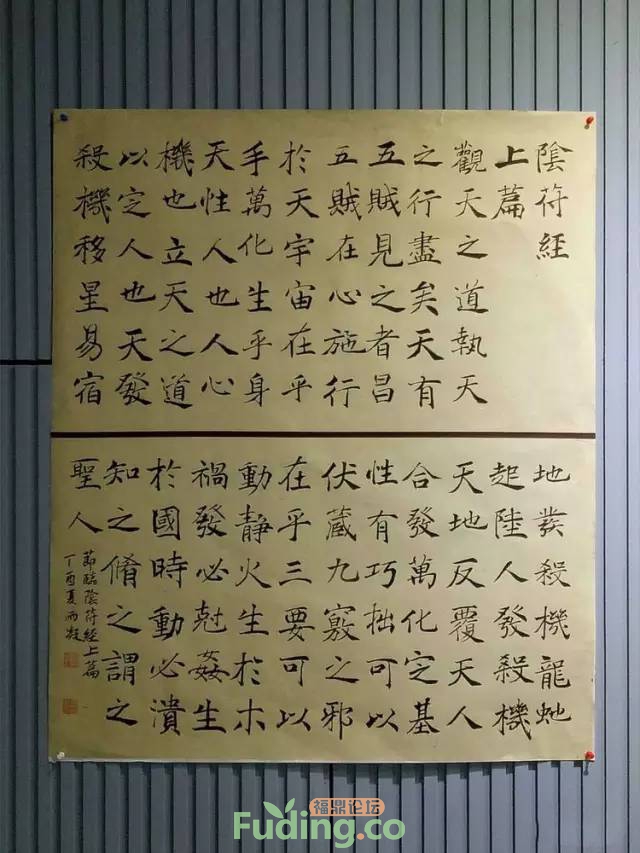 陰符經
上篇
觀天之道執天
之行盡矣天有
五賊見之者昌
五賊在心施行
於天宇宙在乎
手萬化生乎身
天性人也人心
機也立天之道
以定人也天發
殺機移星易宿
地發殺機龍虵
起陸人發殺機
天地反覆天人
合發萬化定基
性有巧拙可以
伏藏九竅之邪
在乎三要可以
動靜火生於木
禍發必尅姦生
於國時動必潰
知之脩之謂之
聖人
節臨陰符經上篇
丁酉夏雨凝
福鼎论坛
Fuding.co